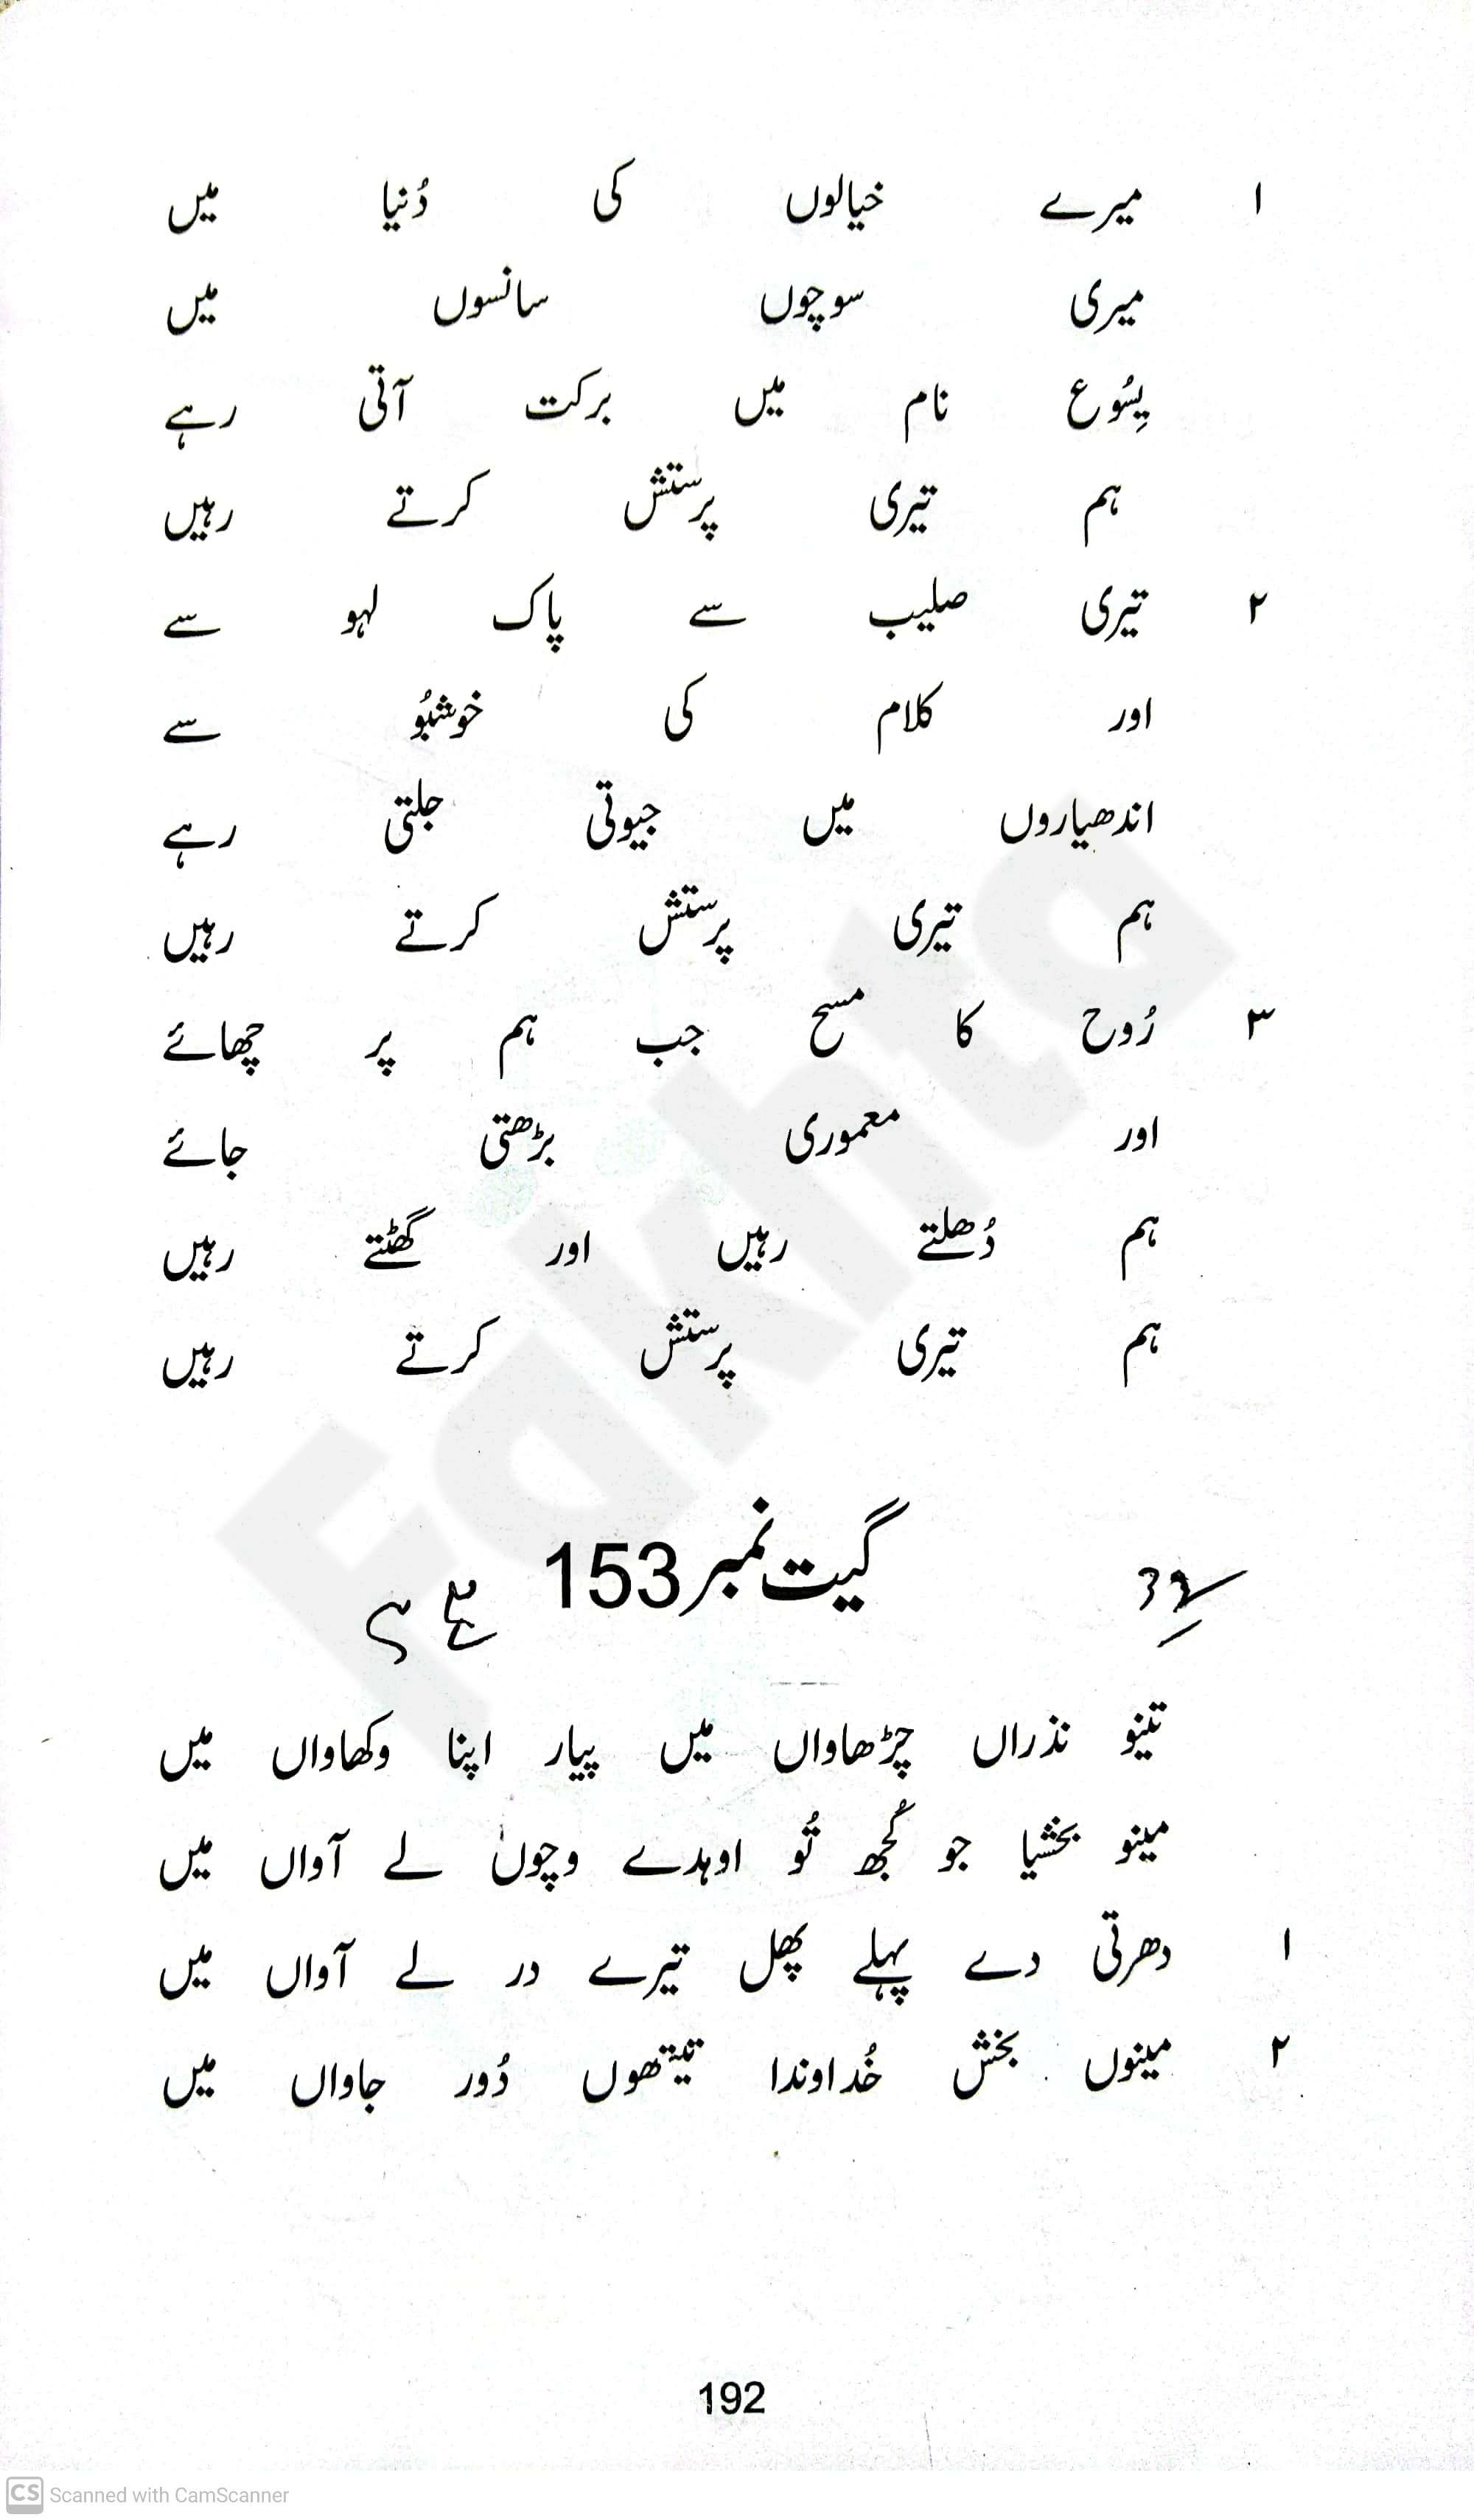 ۱ میرے خیالوں کی دُنیا میں
میری سوچوں سانسوں میں
یِسُوع نام میں برکت آتی رہے
ہم تیری پرستش کرتے رہیں
۲ تیری صلیب سے پاک لہو سے
اور کلام کی خوشبُو سے
اندھیاروں میں جیوتی جلتی رہے
ہم تیری پرستش کرتے رہیں
۳ رُوح کا مسح جب ہم پر چھائے
اور معموری بڑھتی جائے
ہم دُھلتے رہیں اور گھٹتے رہیں
ہم تیری پرستش کرتے رہیں
گیت نمبر 153
تینو نذراں چڑھاواں میں پیار اپنا وکھاواں میں
مینو بخشیا جو کُجھ تُو اوہدے وچوں لے آواں میں
۱ دھرتی دے پہلے پھل تیرے در لے آواں میں
۲ مینوں بخش خُداوندا تیتھوں دُور جاواں میں
192
Fakhta
CS Scanned with CamScanner